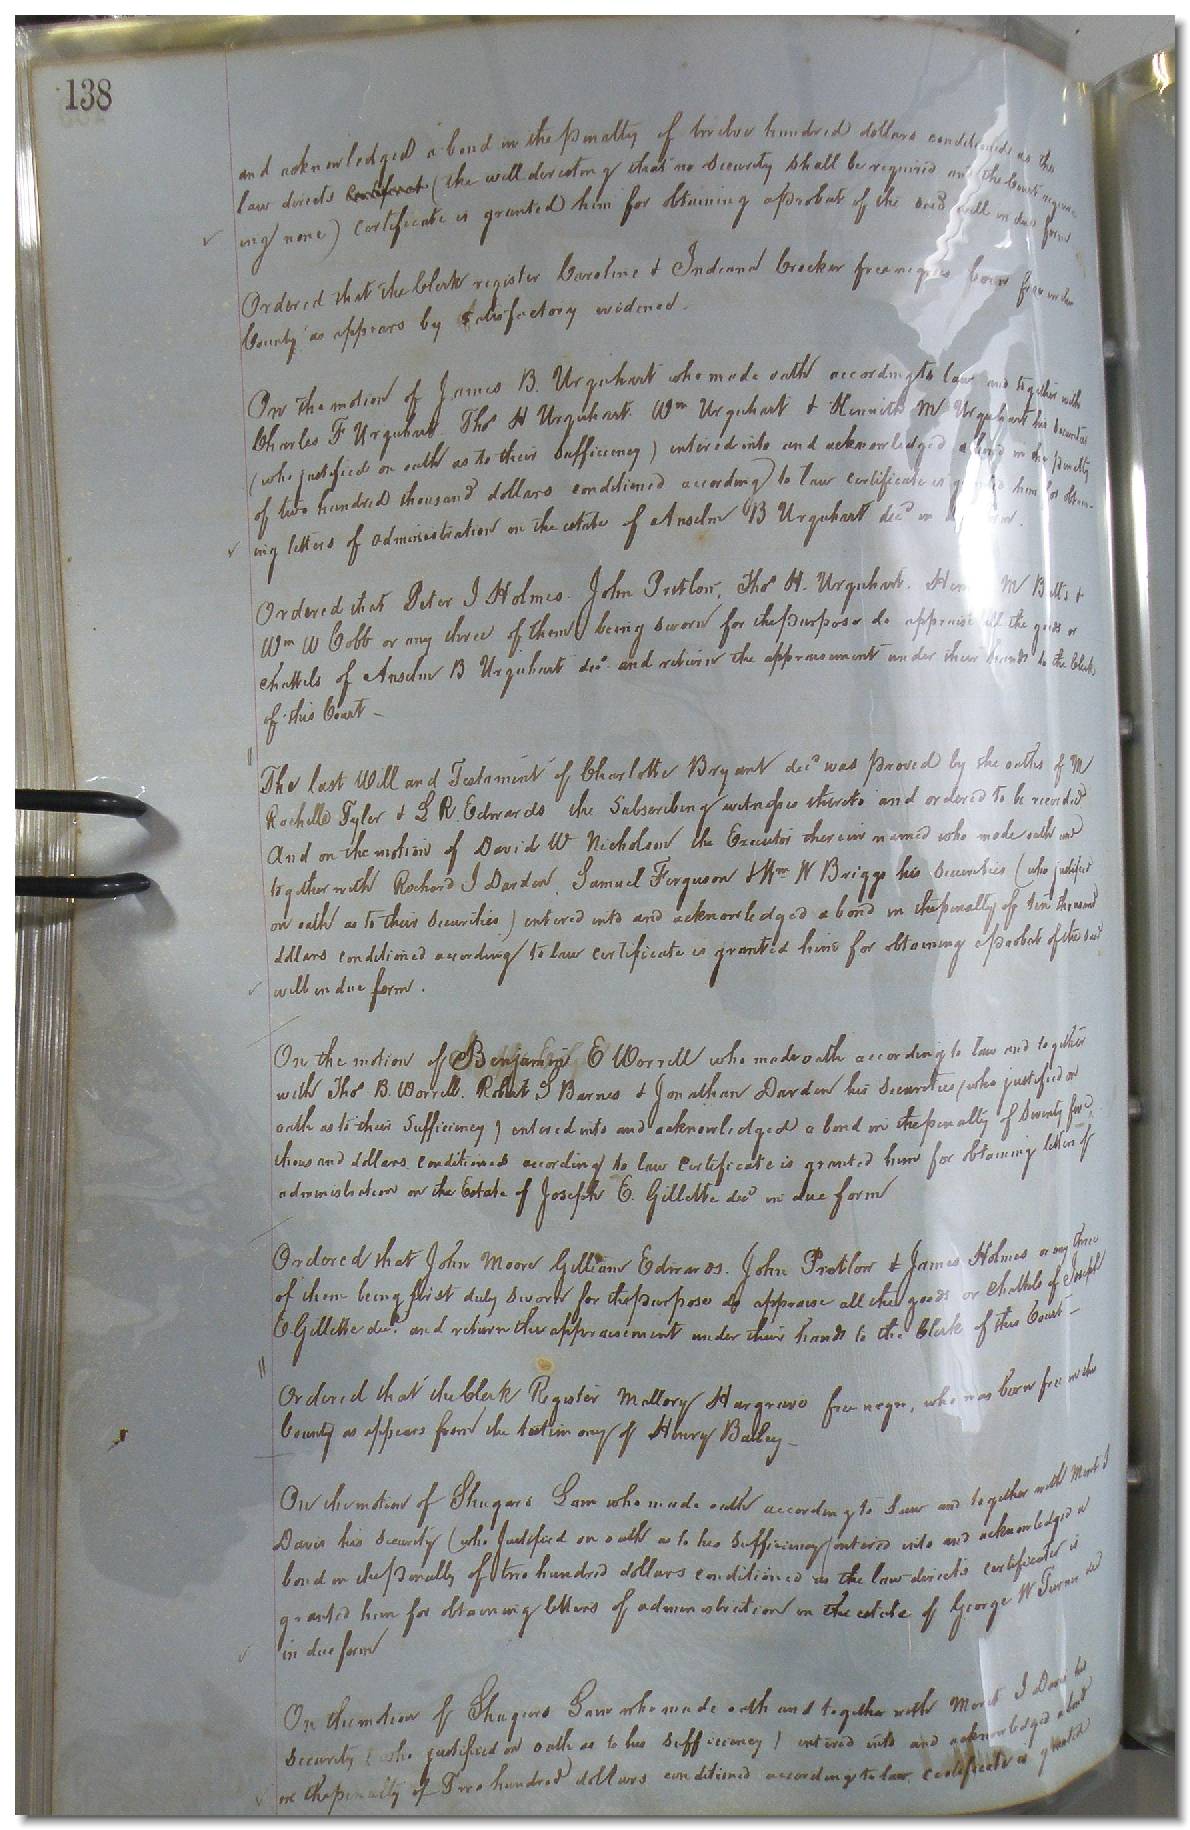 138
and acknowledged a bond in the penalty of twelve hundred dollars conditioned as the
law directs certificate (the will directing that no security shall be required and the Court requir-
ing none) certificate is granted him for obtaining a probat of the said will in due form
Ordered that the Clerk register Caroline & Indiana Crocker free negroes born free in this
County as appears by satisfactory evidence.
On the motion of James B. Urquhart who made oath according to law and together with
Charles F Urquhart Thos H Urquhart Wm Urquhart & Kenneth M Urquhart his securities
(who justified on oath as to their sufficiency) entered into and acknowledged a bond in the penalty
of two hundred thousand dollars conditioned according to law certificate is granted him for obtain-
ing letters of administration on the estate of Anselm B Urquhart decd in due form.
Ordered that Peter J Holmes. John Pretlow, Thos H. Urquhart. M Butts &
Wm W Cobb or any three of them being sworn for the purpose do appraise all the goods or
chattels of Anselm B Urquhart decd and return the appraisement under their hands to the Clerk
of this Court -
The last Will and Testament of Charlotte Bryant decd was proved by the oaths of M
Rochelle Tyler & L R. Edwards the Subscribing witnesses thereto and ordered to be recorded
And on the motion of David W Nicholson the Executor therein named who made oath and
together with Richard J Darden, Samuel Ferguson & Wm W Briggs his Securities (who justified
on oath as to their securities) entered into and acknowledged a bond in the penalty of ten thousand
dollars conditioned according to law certificate is granted him for obtaining a probat of the said
will in due form.
On the motion of Benjamin E Worrell who made oath according to law and together
with Thos B. Worrell. Robert S Barnes & Jonathan Darden his Securities (who justified on
oath as to their Sufficiency) entered into and acknowledged a bond in the penalty of Seventy five
thousand dollars conditioned according to law certificate is granted him for obtaining letters of
administration on the Estate of Joseph E. Gillette decd in due form
Ordered that John Moore Gilliam Edwards. John Pretlow & James Holmes or any three
of them being first duly sworn for the purpose do appraise all the goods or Chattels of Joseph
E Gillette decd. and return the appraisement under their hands to the Clerk of this Court -
Ordered that the Clerk Register Mallory Hargrave free negro, who was born free in this
County as appears from the testimony of Henry Bailey -
On the motion of Shugars Lain who made oath according to Law and together with J
Davis his Security (who Justified on oath as to his Sufficiency) entered into and acknowledged a
bond in the penalty of two hundred dollars conditioned as the law directs certificate is
granted him for obtaining letters of administration on the estate of George W Turner decd
in due form
On the motion of Shugars Lain who made oath and together with J Davis his
Security (who justified on oath as to his Sufficiency) entered into and acknowledged a bond
in the penalty of Two hundred dollars conditioned according to law. certificate is granted